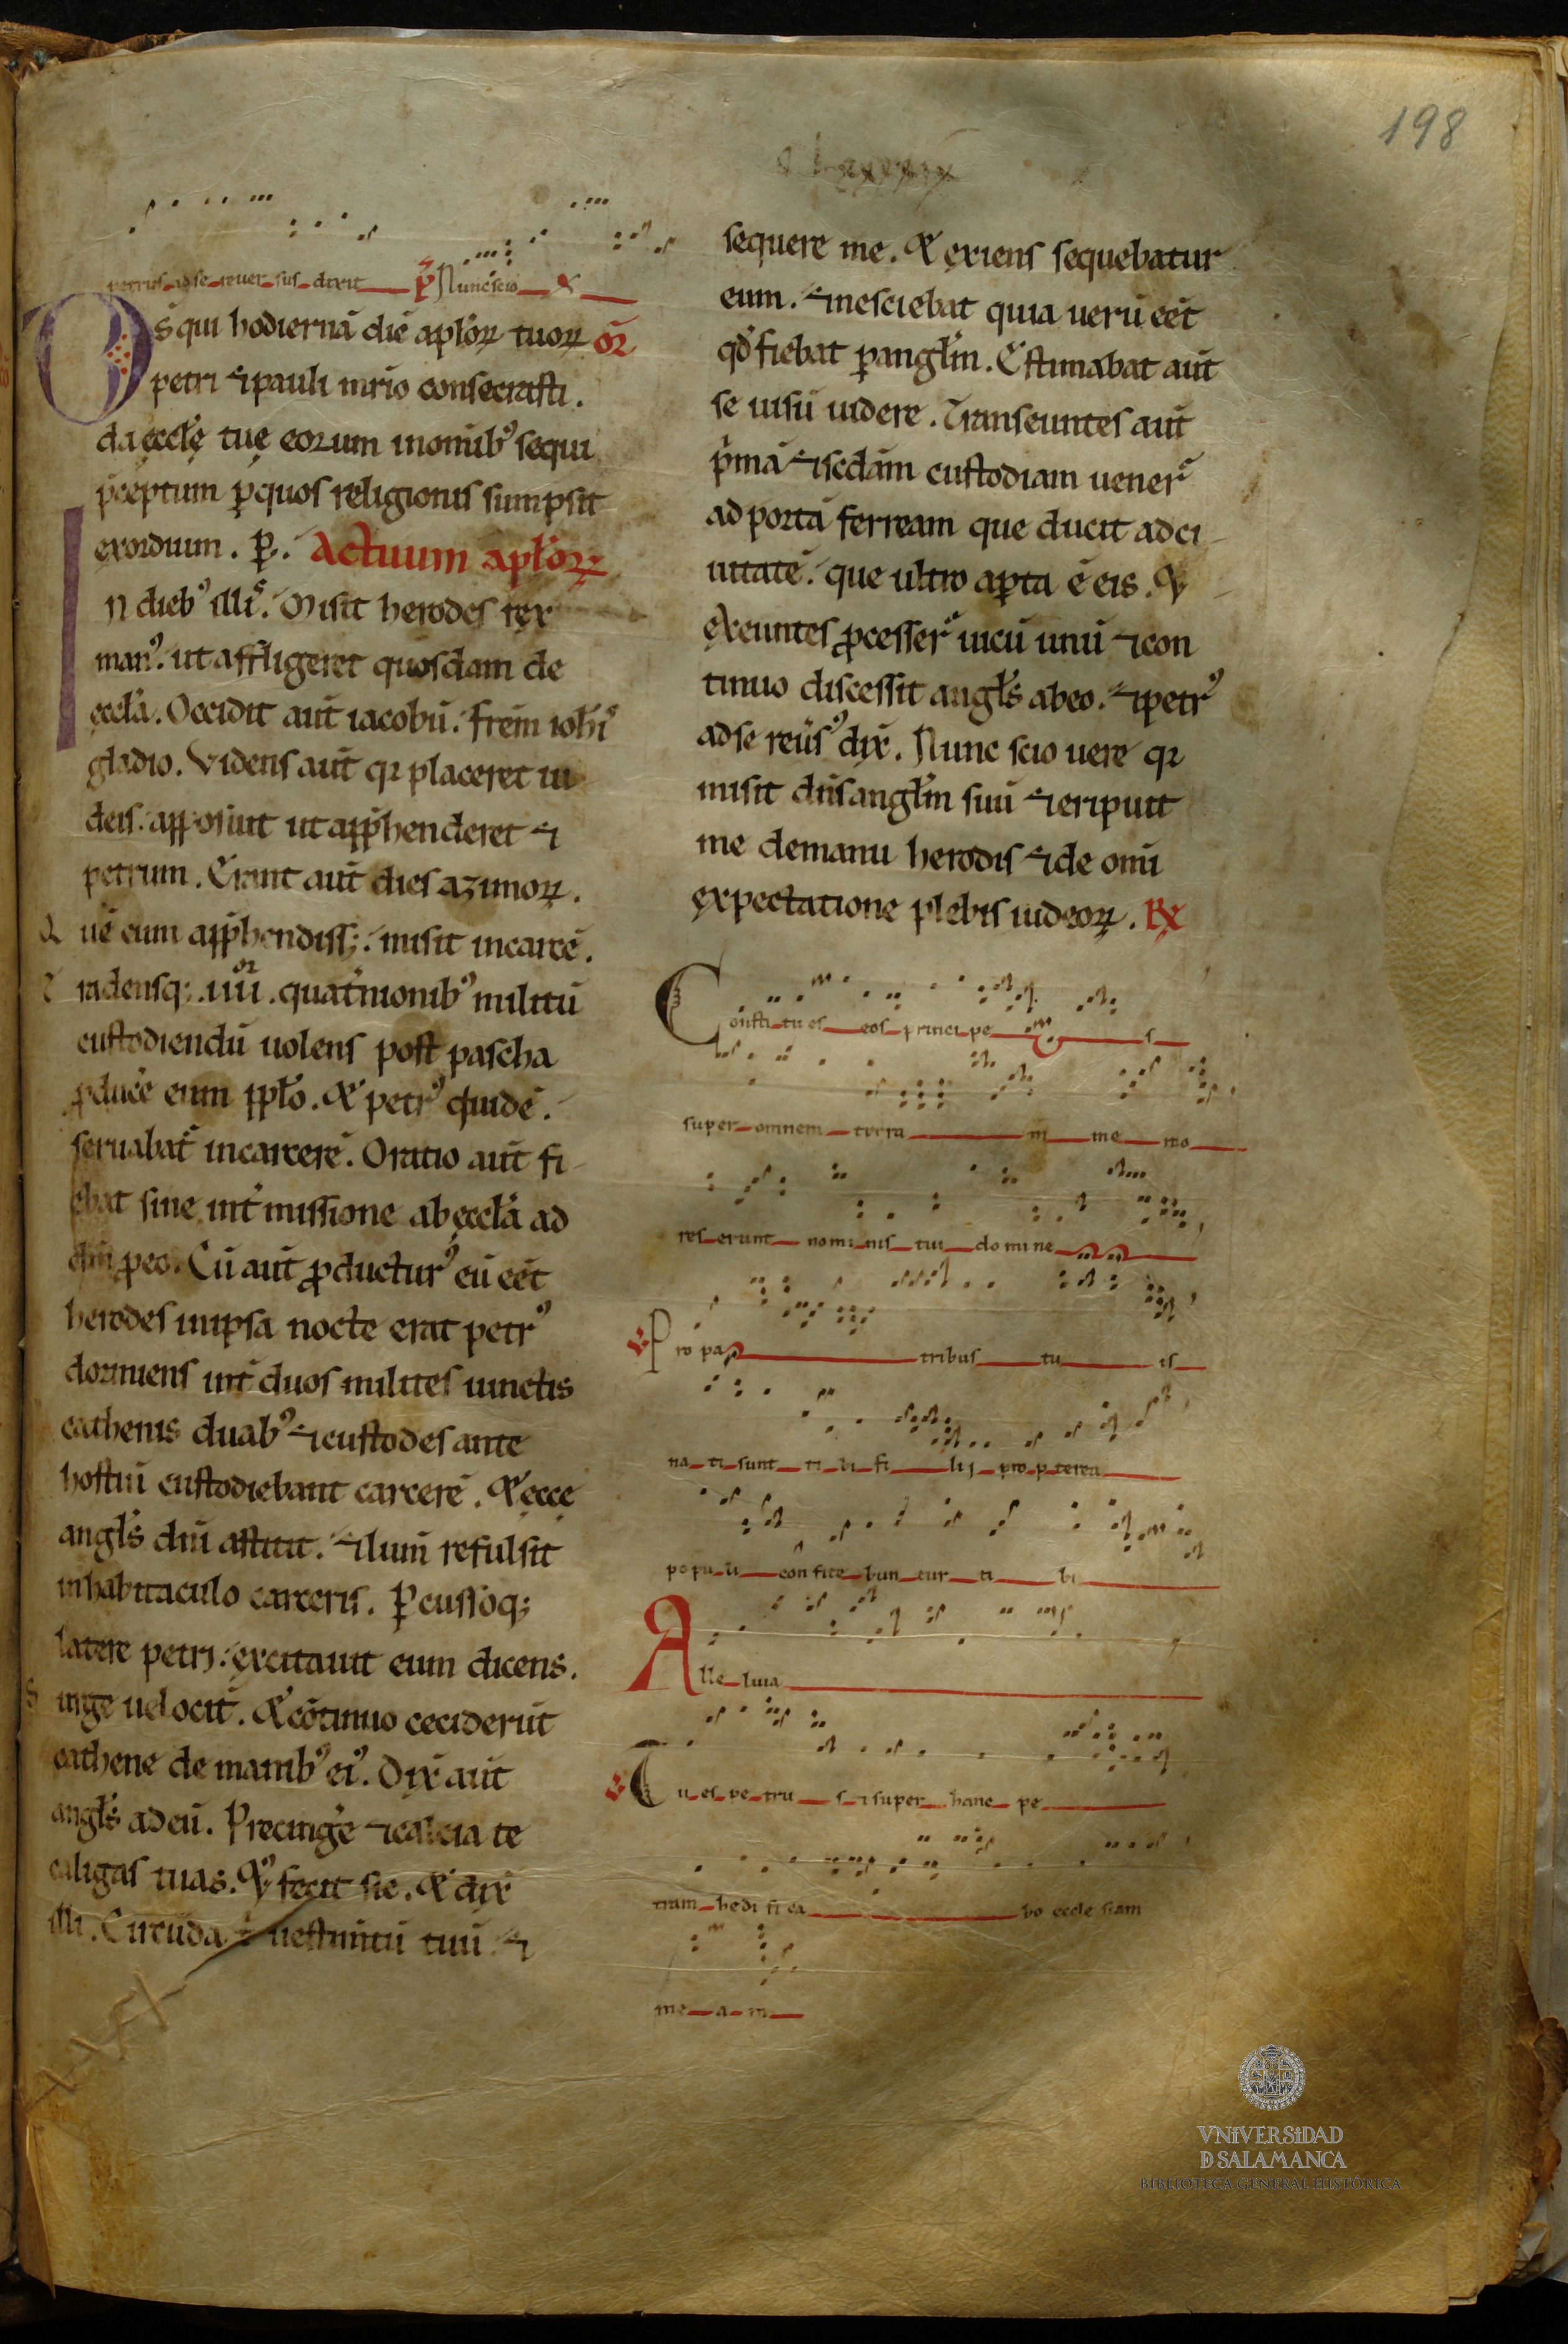 198
petrus ad se reuer sus dixit ꝑ Nunc scio
Ds̄ qui hodiernā diē aplōꝝ tuoꝝ oꝝ̄
petri ⁊ pauli mr̄io consecrasti.
da ęccl̄ę tuę eorum in omīb᾽ sequi
p̄ceptum ꝑ quos religionis sumpsit
exordium. ꝑ. Actuum aplōꝝ.
In dieb᾽ illis᾽. Misit herodes rex
man᾽. ut affligeret quosdam de
ęccl̄a. Occidit aut̄ iacobū. frēm ioh̄is᾽
gladio. Videns aut̄ qꝛ placeret iu
deis. apposuit ut app̄henderet ⁊
petrum. Erant aut̄ dies azimoꝝ.
Quē cum app̄hendiss;. misit in carcē.
tradensq;. iiiior. quat̄nionib᾽ militū
custodiendū uolens post pascha
ꝓducē eum ppl̄o. Et petr᾽ quidē.
seruabat᾽ in carcere. Oratio aut̄ fi
ebat sine int̄missione ab ęccl̄a ad
dm̄ ꝓ eo. Cū aut̄ ꝓducturus᾽ eū eēt
herodes in ipsa nocte erat petr᾽
dormiens int̄ duos milites iunctis
cathenis duab᾽ ⁊ custodes ante
hostiū custodiebant carcerē. Et ęcce
angl̄s dn̄i astitit. ⁊ lum̄ refulsit
in habitaculo carceris. Ꝑcussoq;
latere petrj. excitauit eum dicens.
Surge uelocit̄. Et cōtinuo ceciderūt
cathene de manib᾽ ei᾽. Dix̄ aut̄
angl̄s ad eū. Precingē ⁊ calcia te
caligas tuas. Et fecit sic. Et dix̄
illi. Circūda t̄ uestim̄tū tuū ⁊
sequere me. Et exiens sequebatur
eum. ⁊ nesciebat quia uerū eēt
qd̄ fiebat ꝑ angl̄m. Estimabat aut̄
se uisū uidere. Transeuntes aut̄
p̄mā ⁊ scdām custodiam uener᾽
ad portā ferream que ducit ad ci
uitatē. que ultro aꝑta ē eis. Et
exeuntes ꝓcesser᾽ uicū unū ⁊ con
tinuo discessit angl̄s ab eo. ⁊ petr᾽
ad se reūs᾽ dix̄. Nunc scio uere qꝛ
misit dn̄s angl̄m suū ⁊ eripuit
me de manu herodis ⁊ de omi
expectatione plebis iudeoꝝ. Rx
Constitu es eos principe s
super omnem terra m me mo
res erunt nominis tui domine
V Pro pa tribus tu is
na ti sunt ti bi fi lij pro pterea
popu li confite bun tur ti bi
Alle luia
V Tu es pe tru s ⁊ super hanc pe
tram hedi fi ca bo eccle siam
me a m
VNiVERSiDAD
D SALAMANCA
BIBLIOTECA GENERAL HISTÓRICA